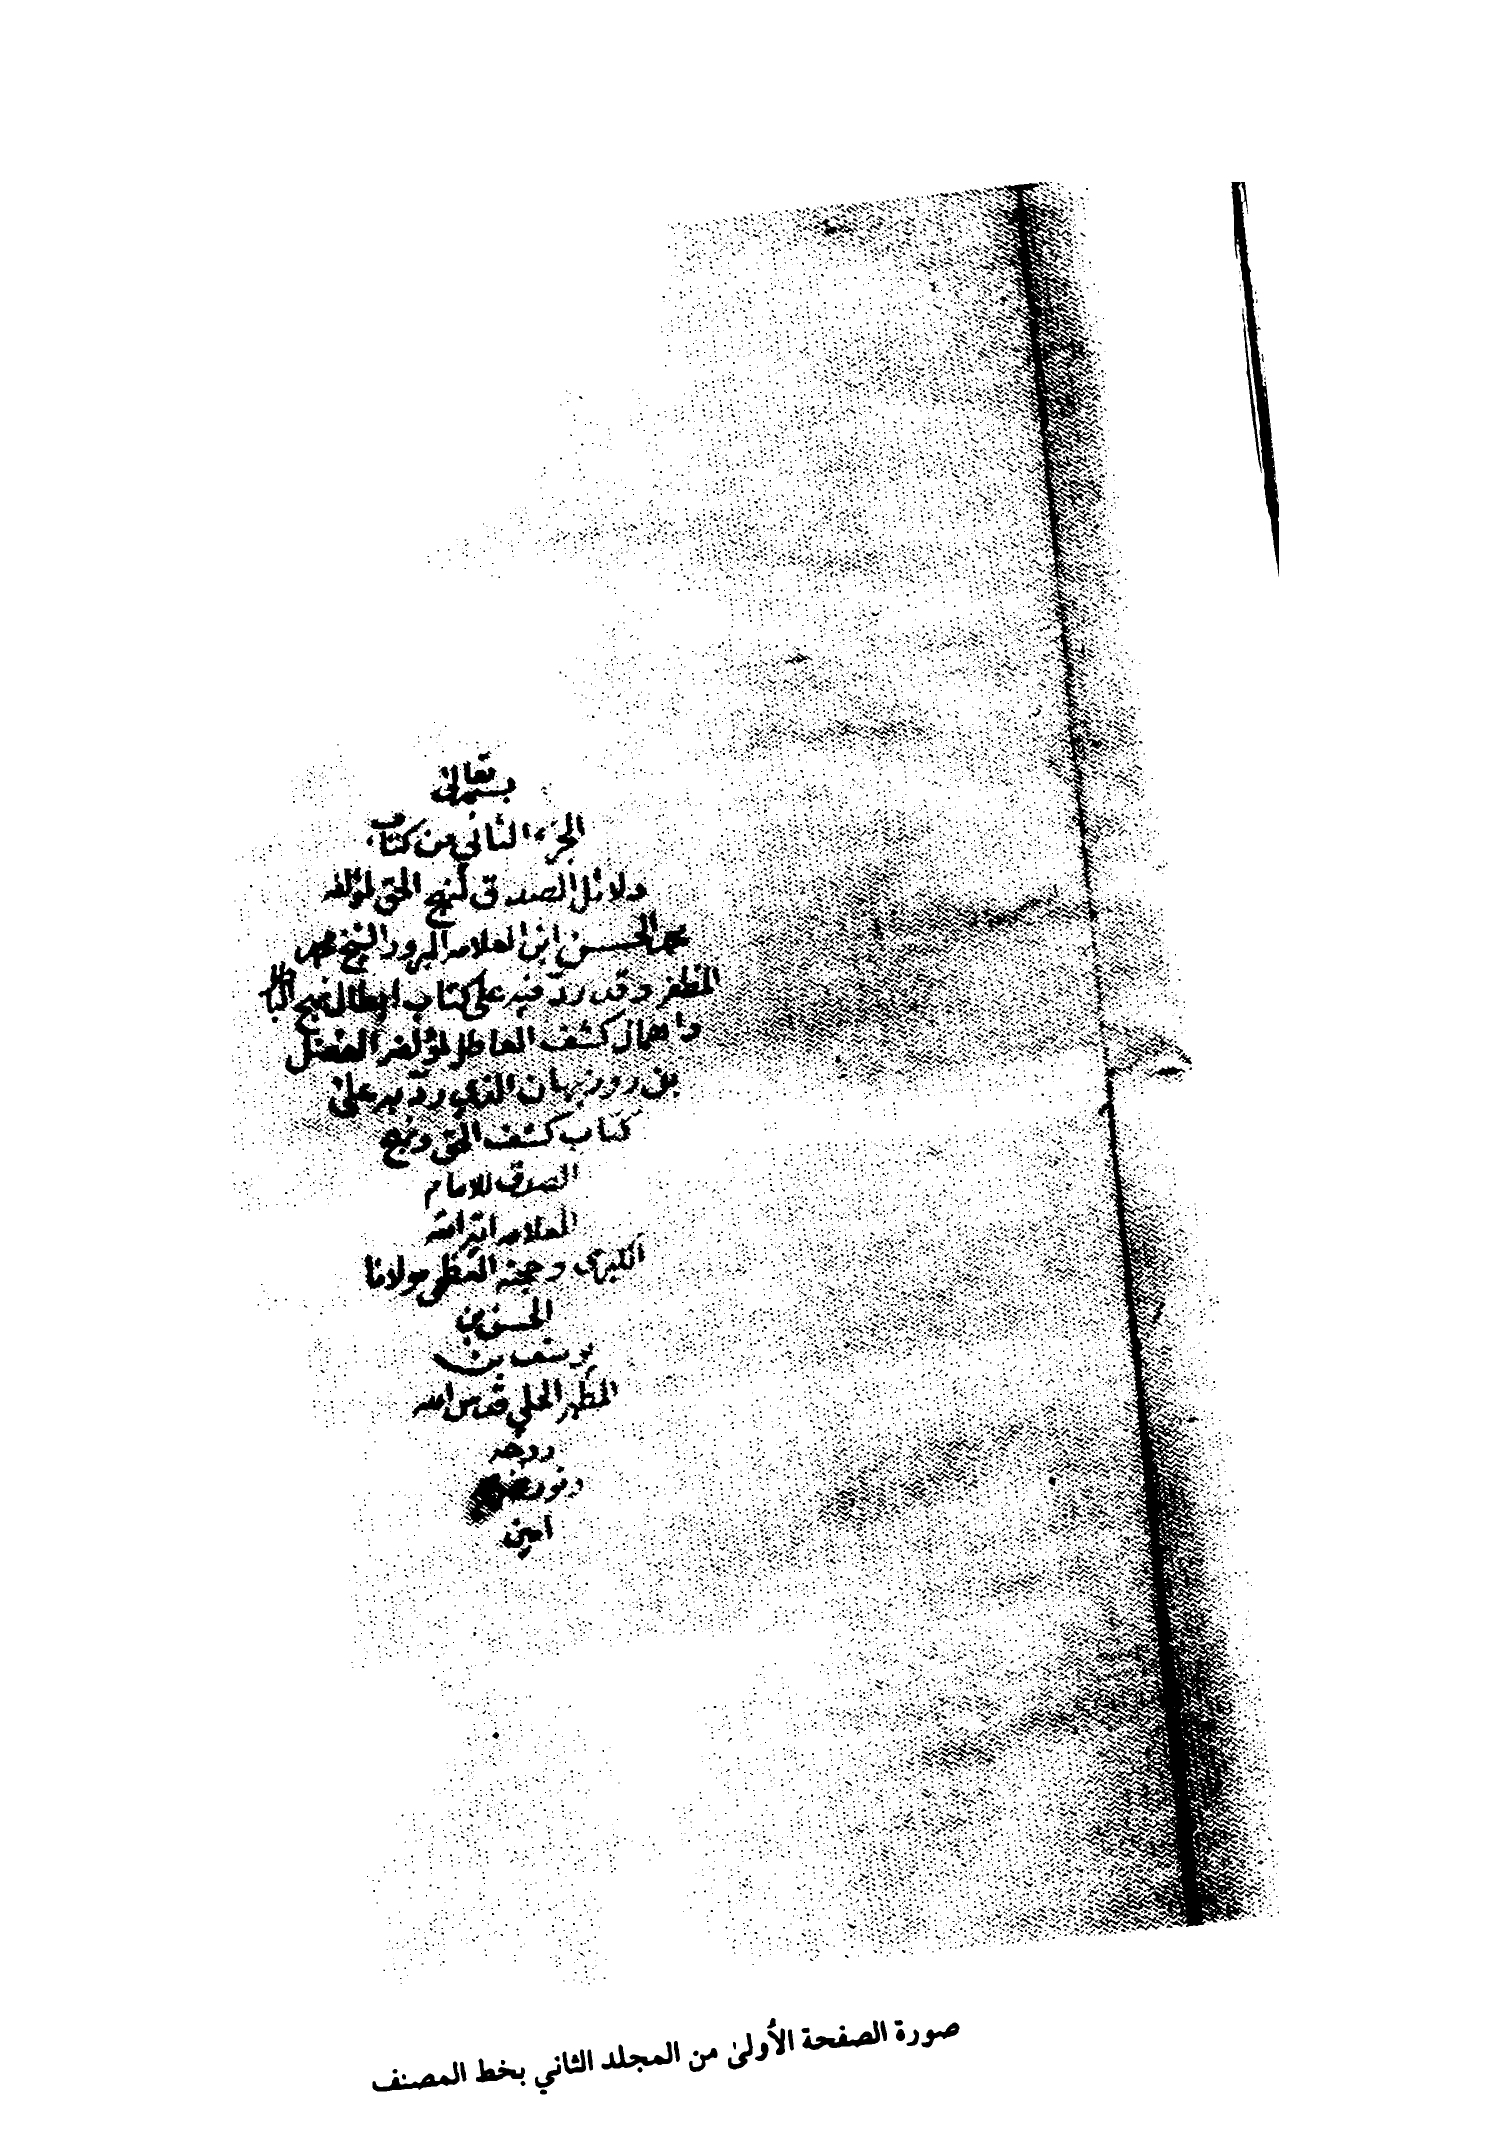 بسمه تعالى
الجزء الثاني من كتاب
دلائل الصدق لنهج الحق لمؤلفه
محمد الحسن ابن العلامة المبرور الشيخ محمد
المظفر وقد رد فيه على كتاب ابطال نهج الباطل
واهمال كشف العاطل لمؤلفه الفضل
بن روزبهان الذي رد به على
كتاب كشف الحق ونهج
الصدق للامام
العلامه اية الله
الكبرى وحجته العظمى مولانا
الحسن بن
يوسف بن
المطهر الحلي قدس الله
روحه
ونور
امين
صورة الصفحة الأولىٰ من المجلد الثاني بخط المصنف